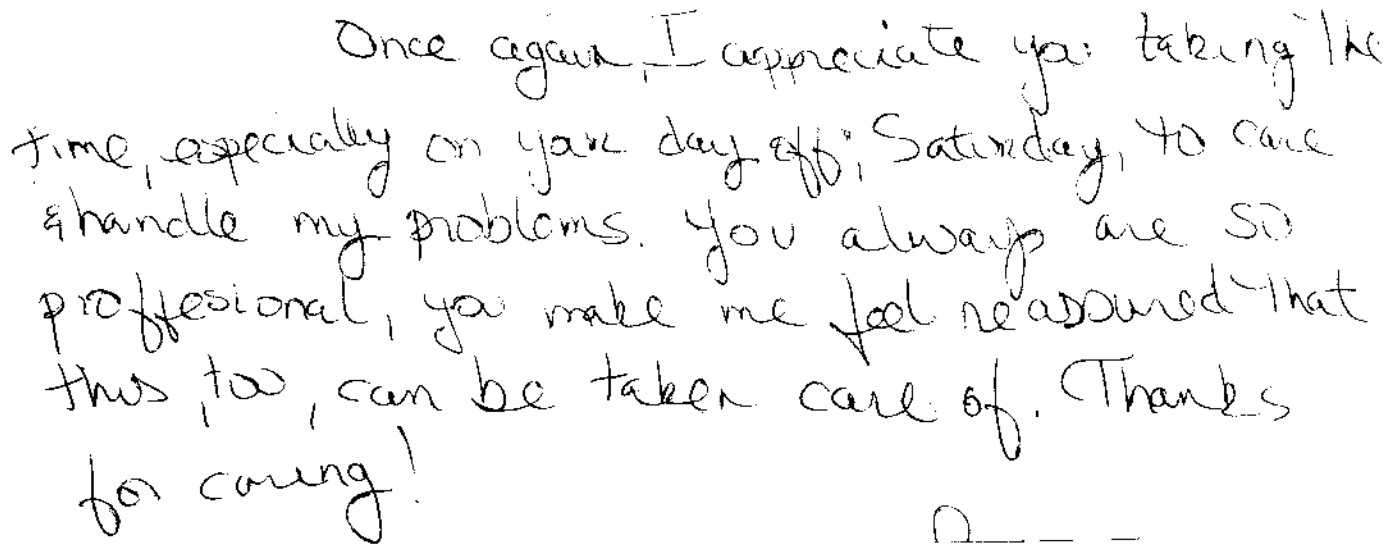 Once again, I appreciate you taking the
time, especially on your day off, Saturday, to care
& handle my problems. You always are so
proffesional, you make me feel reassured that
this, too, can be taken care of. Thanks
for caring!